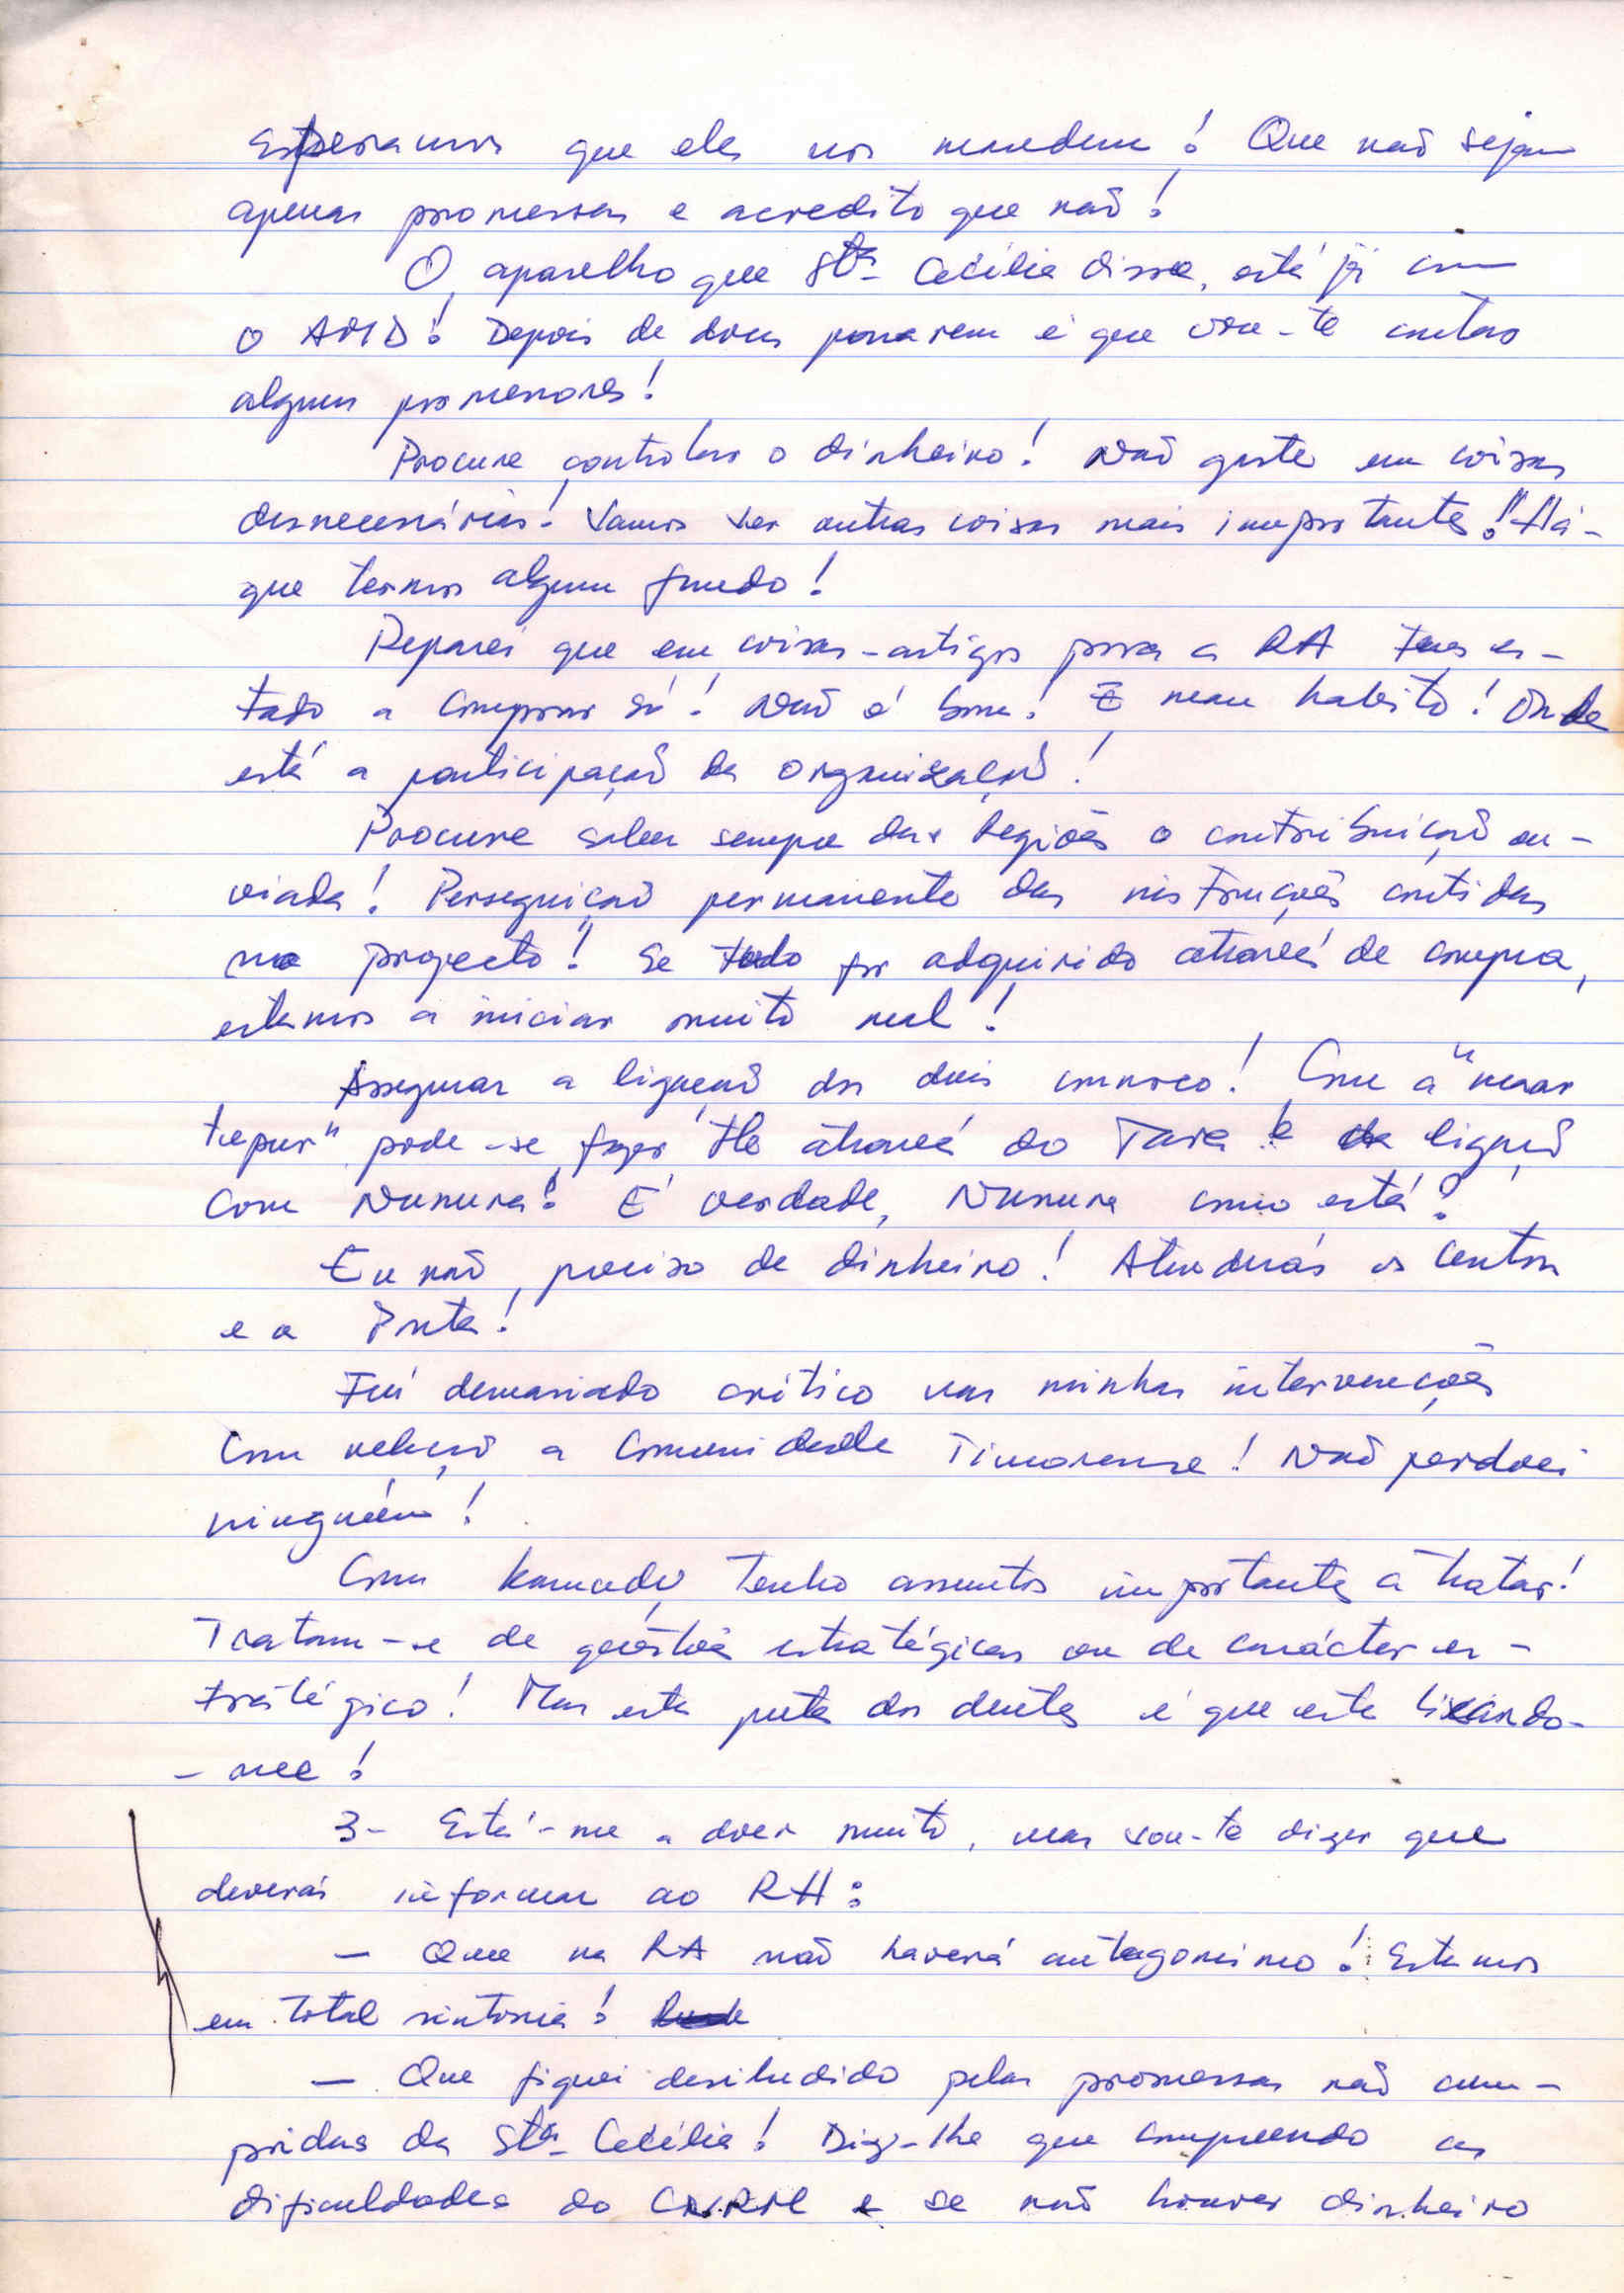 Esperamos que eles nos mandem! Que não sejam
apenas promessas e acredito que não!
O aparelho que Stª Cecília disse, está já com
o AMD! Depois de dores passarem é que vou-te contar
alguns promenores!
Procure controlar o dinheiro! Não gaste em coisas
desnecessárias! Vamos ver outras coisas mais importantes! Há-
que termos algum fundo!
Reparei que em coisas-artigos para a RA tens es-
tado a comprar só! Não é bom! E mau habito! Onde
está a participação da organização!
Procure saber sempre das Regiões o contribuição en-
viada! Perseguição permanente das instruções contidas
no projecto! Se tudo for adquirido através de compra,
estamos a iniciar muito mal!
Assegurar a ligação dos dois connosco! Com a "
" pode-se fazer através do Tara e ligação
com Nunura! E' verdade, Nunura como está?
Eu não preciso de dinheiro! Atenderás os centros
e a Ponta!
Fui demasiado crítico nas minhas intervenções
com relação a Comunidade Timorense! Não perdoei
ninguém!
Com tenho assuntos importantes a tratar!
Tratam-se de questões estratégicas ou de carácter es-
tratégico! Mas esta puta dos dentes é que esta lixando-
-me!
3- Está-me a doer muito, mas vou-te dizer que
deverás informar ao RH:
— Que na RA não haverá antagonismo! Estamos
em total sintonia!
— Que fiquei desiludido pelas promessas não cum-
pridas da Stª Cecília! Diz-lhe que compreendo as
dificuldades do CNRM e se não houver dinheiro